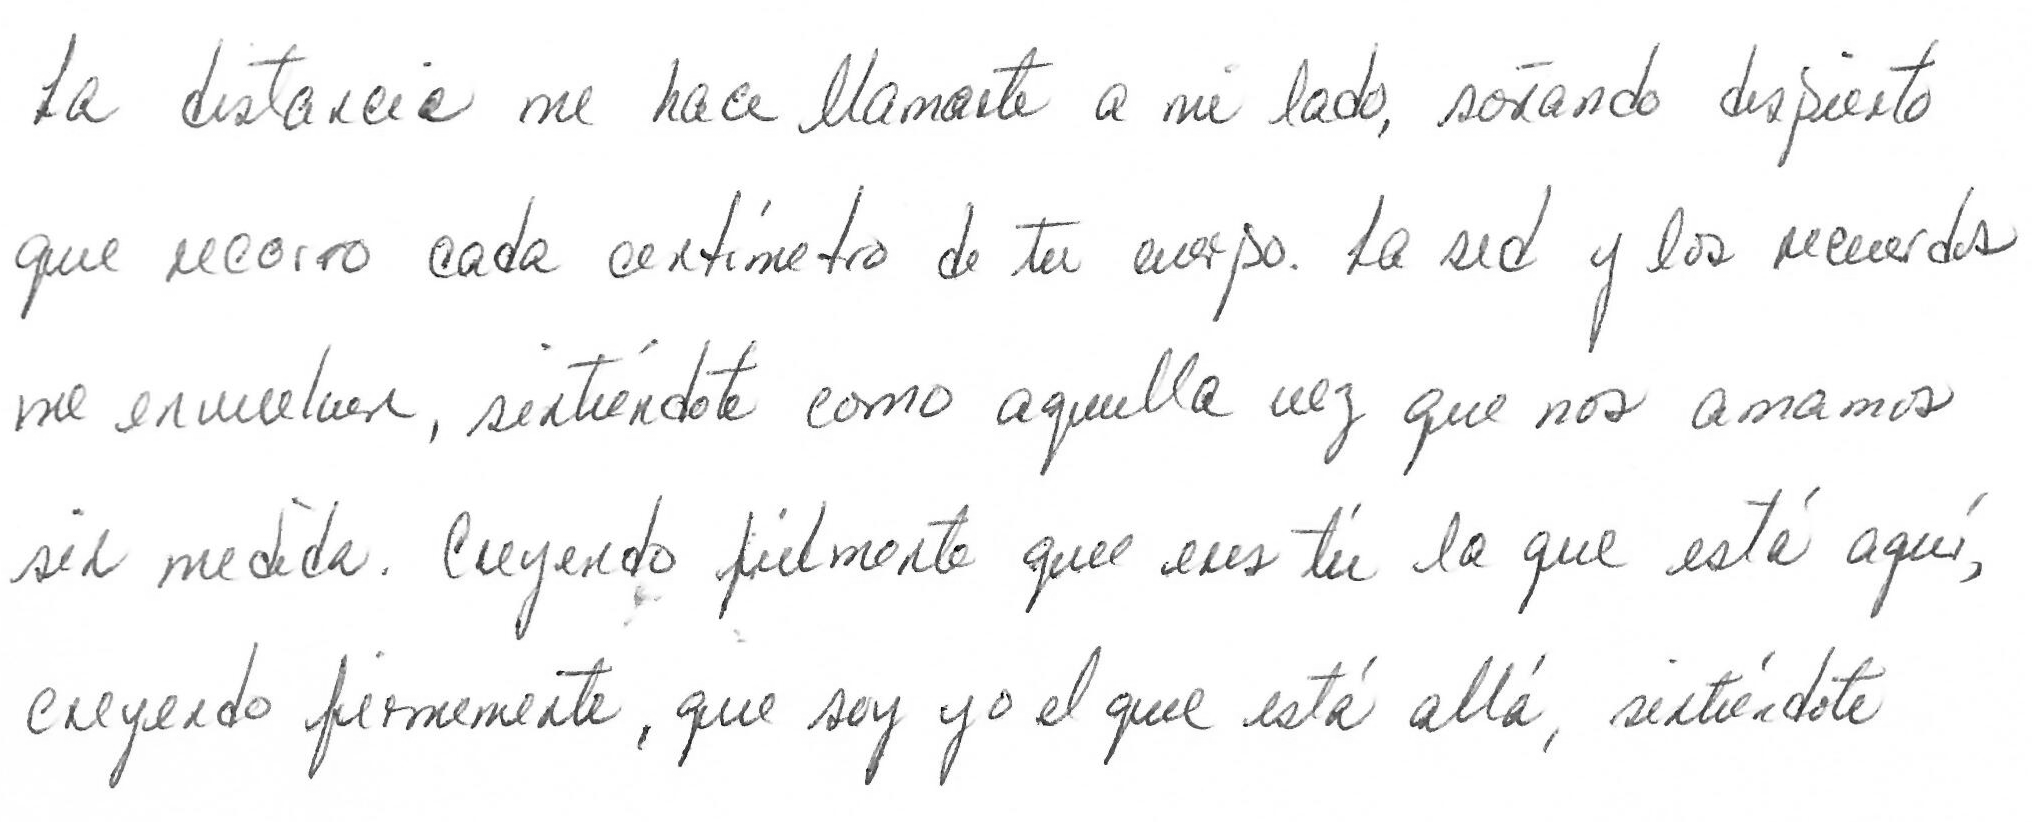 La distancia me hace llamarte a mi lado, soñando despierto
que recorro cada centímetro de tu cuerpo. La sed y los recuerdos
me envuelven, sintiéndote como aquella vez que nos amamos
sin medida. Creyendo fielmente que eres tú la que está aquí,
creyendo firmemente, que soy yo el que está allá, sintiéndote